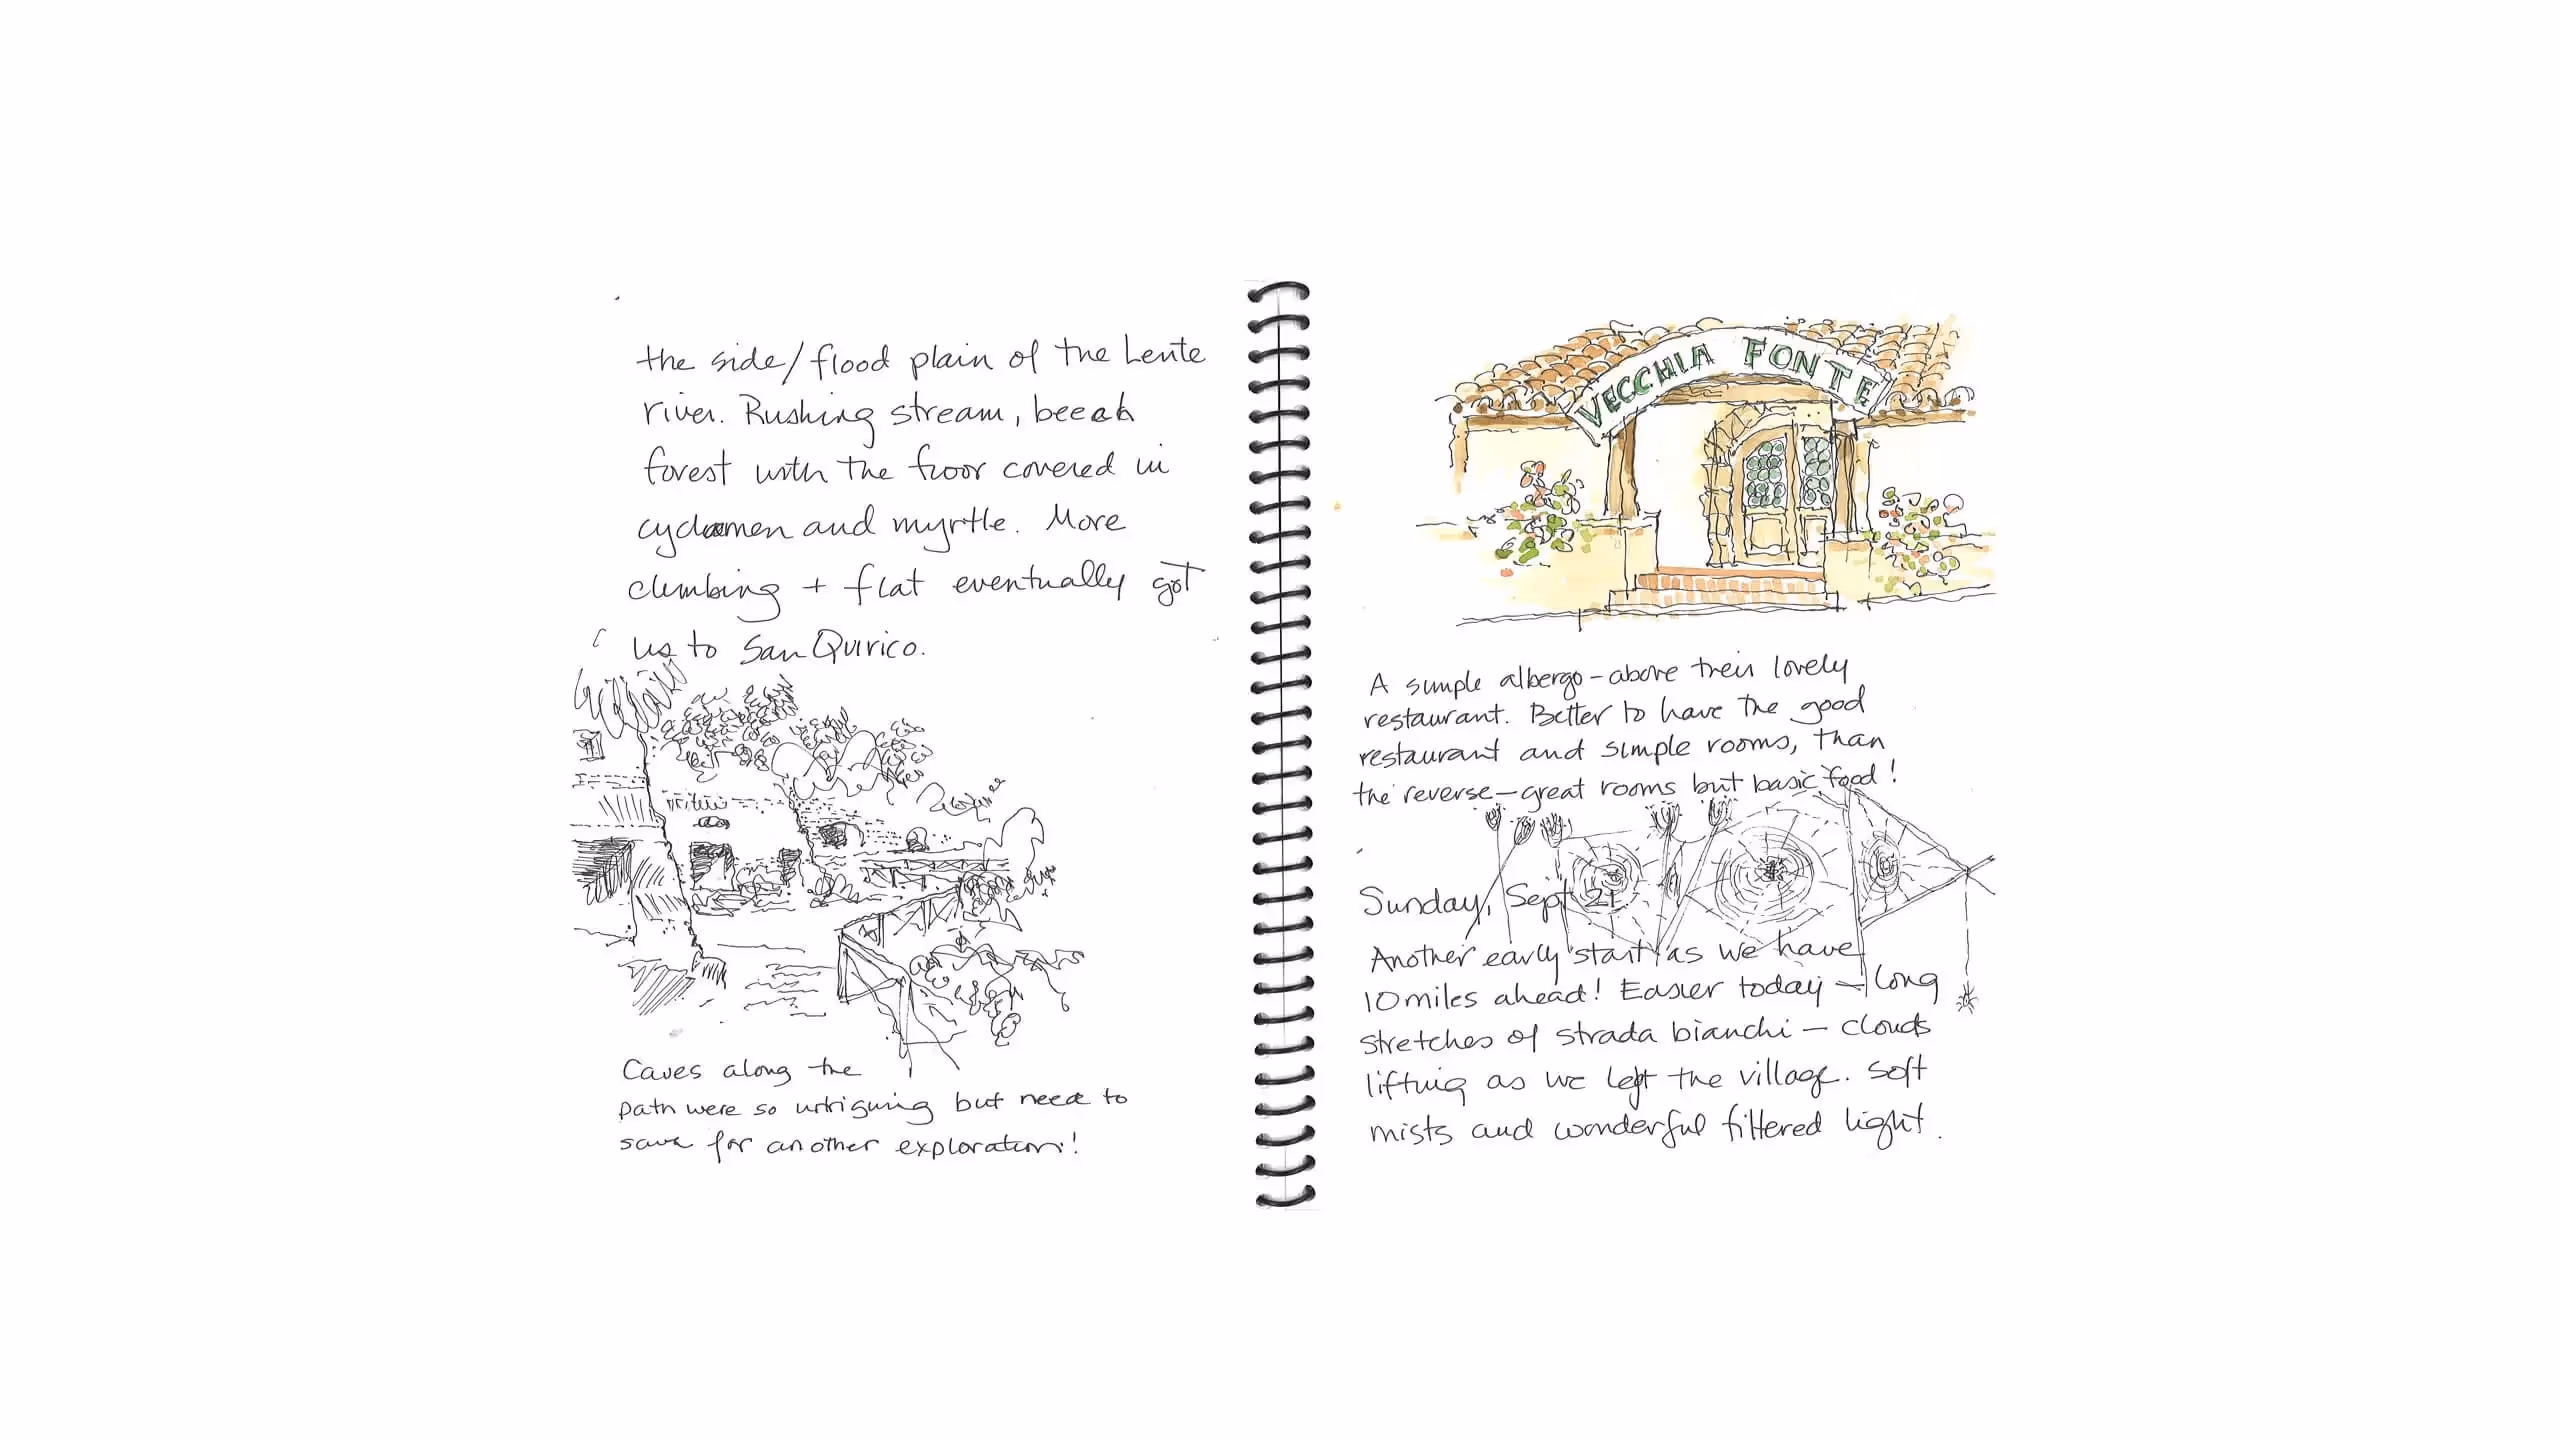 the side/flood plain of the Lente
river. Rushing stream, beech
forest with the floor covered in
cyclamen and myrtle. More
climbing + flat eventually got
us to San Quirico.
Caves along the
path were so intriguing but need to
save for another exploration!
VECCHIA FONTE
A simple albergo – above their lovely
restaurant. Better to have the good
restaurant and simple rooms, than
the reverse – great rooms but basic food!
Sunday, Sept 21
Another early start as we have
10 miles ahead! Easier today – long
stretches of strada bianchi – clouds
lifting as we left the village. Soft
mists and wonderful filtered light.